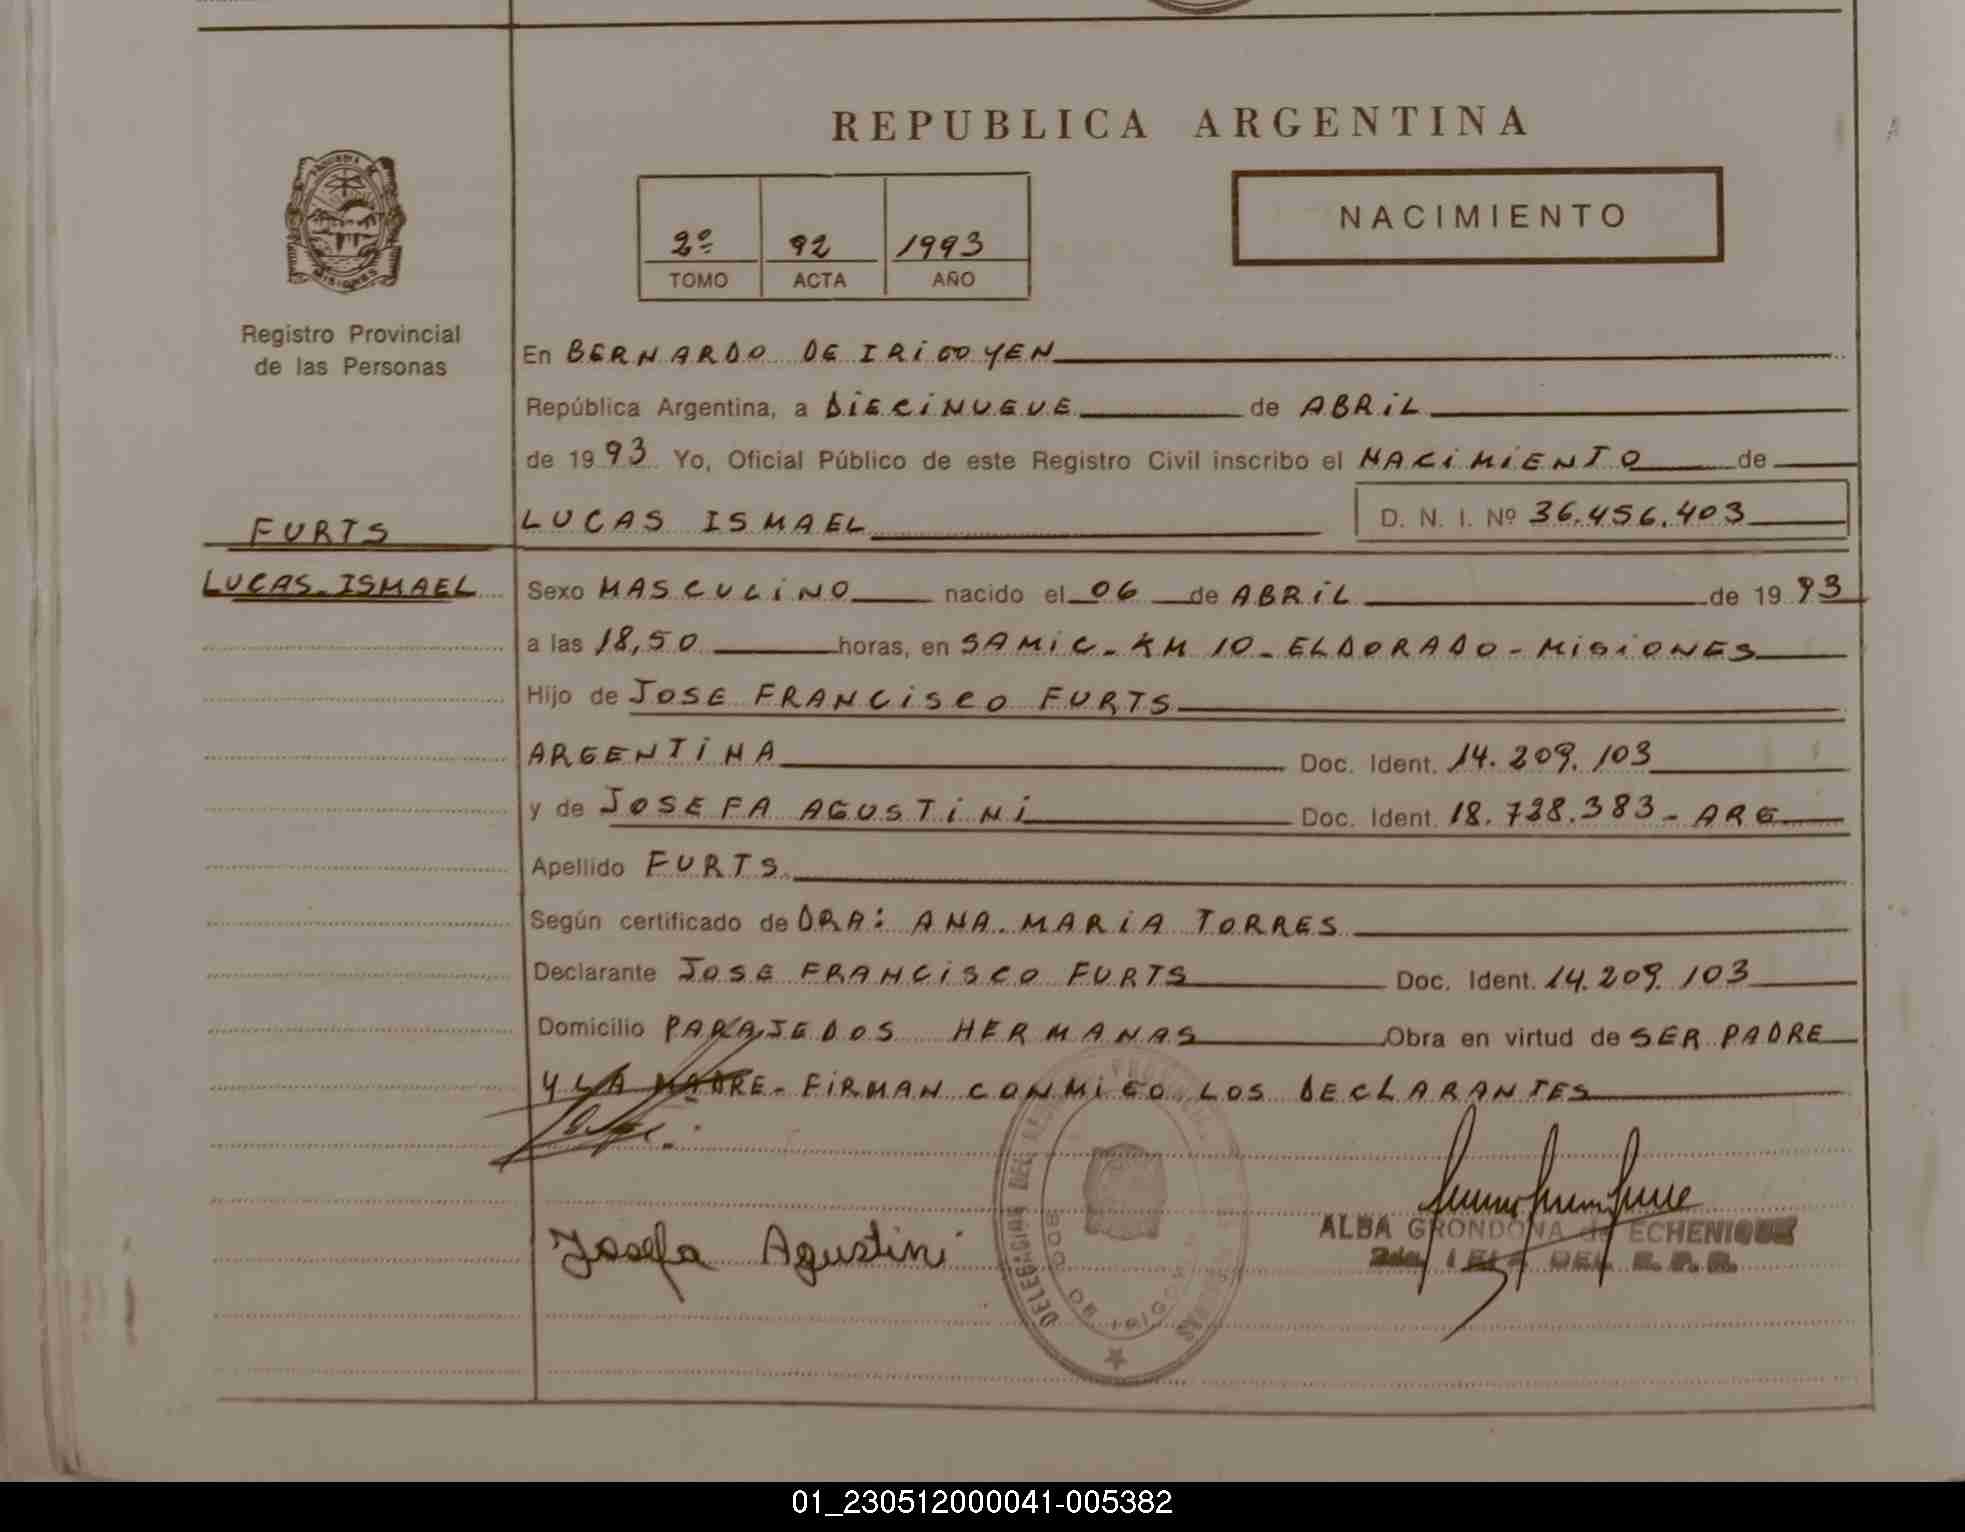 REPUBLICA ARGENTINA
NACIMIENTO
2º 92 1993
TOMO ACTA AÑO
MISIONES
Registro Provincial
de las Personas
En BERNARDO DE IRIGOYEN
República Argentina, a DIECINUEVE de ABRIL
de 1993 Yo, Oficial Público de este Registro Civil inscribo el NACIMIENTO de
FURTS
LUCAS ISMAEL
LUCAS ISMAEL D. N. I. Nº 36.456.403
Sexo MASCULINO nacido el 06 de ABRIL de 1993
a las 18,50 horas, en SAMIC - KM 10 - ELDORADO - MISIONES
Hijo de JOSE FRANCISCO FURTS
ARGENTINA Doc. Ident. 14.209.103
y de JOSEFA AGUSTINI Doc. Ident. 18.738.383 - ARG
Apellido FURTS
Según certificado de DRA: ANA MARIA TORRES
Declarante JOSE FRANCISCO FURTS Doc. Ident. 14.209.103
Domicilio PARAJE DOS HERMANAS Obra en virtud de SER PADRE
Y LA MADRE - FIRMAN CONMIGO LOS DECLARANTES
Josefa Agustini
DELEGACION DEL
BDO. DE IRIGOYEN
ALBA GRONDONA de ECHENIQUE
DEL R. P. P.
01_230512000041-005382